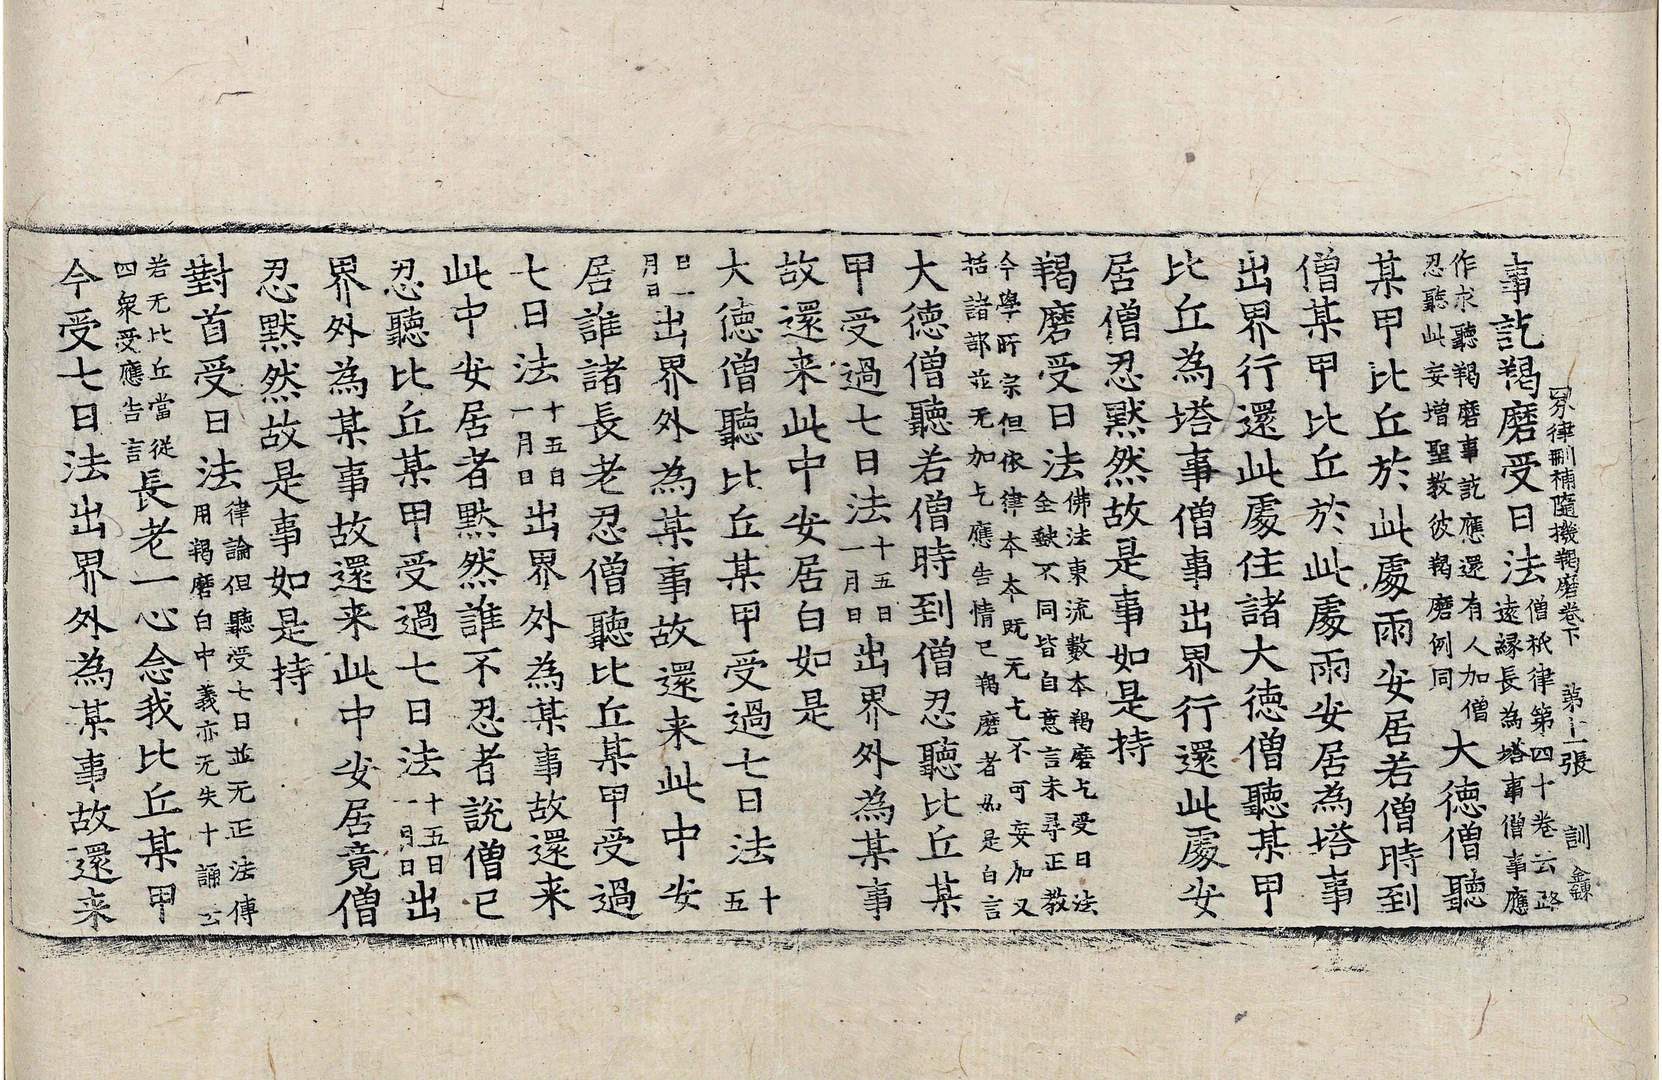 四分律刪補隨機羯磨卷下　第十二張　訓　金練
事訖羯磨受日法僧祇律第四十卷云路遠緣長為塔事僧事應
作求聽羯磨事訖應還有人加僧忍聽此妄增聖教彼羯磨例同大德僧聽
某甲比丘於此處雨安居若僧時到
僧某甲比丘於此處雨安居為塔事
出界行還此處住諸大德僧聽某甲
比丘為塔事僧事出界行還此處安
居僧忍默然故是事如是持
羯磨受日法佛法東流數本羯磨乞受日法全缺不同皆自意言未尋正教
今學所宗但依律本本既无乞不可妄加又括諸部並无加乞應告情已羯磨者如是白言
大德僧聽若僧時到僧忍聽比丘某
甲受過七日法十五日一月日出界外為某事
故還来此中安居白如是
大德僧聽比丘某甲受過七日法十五
日一月日出界外為某事故還来此中安
居誰諸長老忍僧聽比丘某甲受過
七日法十五日一月日出界外為某事故還来
此中安居者默然誰不忍者說僧已
忍聽比丘某甲受過七日法十五日一月日出
界外為某事故還来此中安居竟僧
忍默然故是事如是持
對首受日法律論但聽受七日並无正法傳用羯磨白中義亦无失十誦云
若无比丘當從四衆受應告言長老一心念我比丘某甲
今受七日法出界外為某事故還来